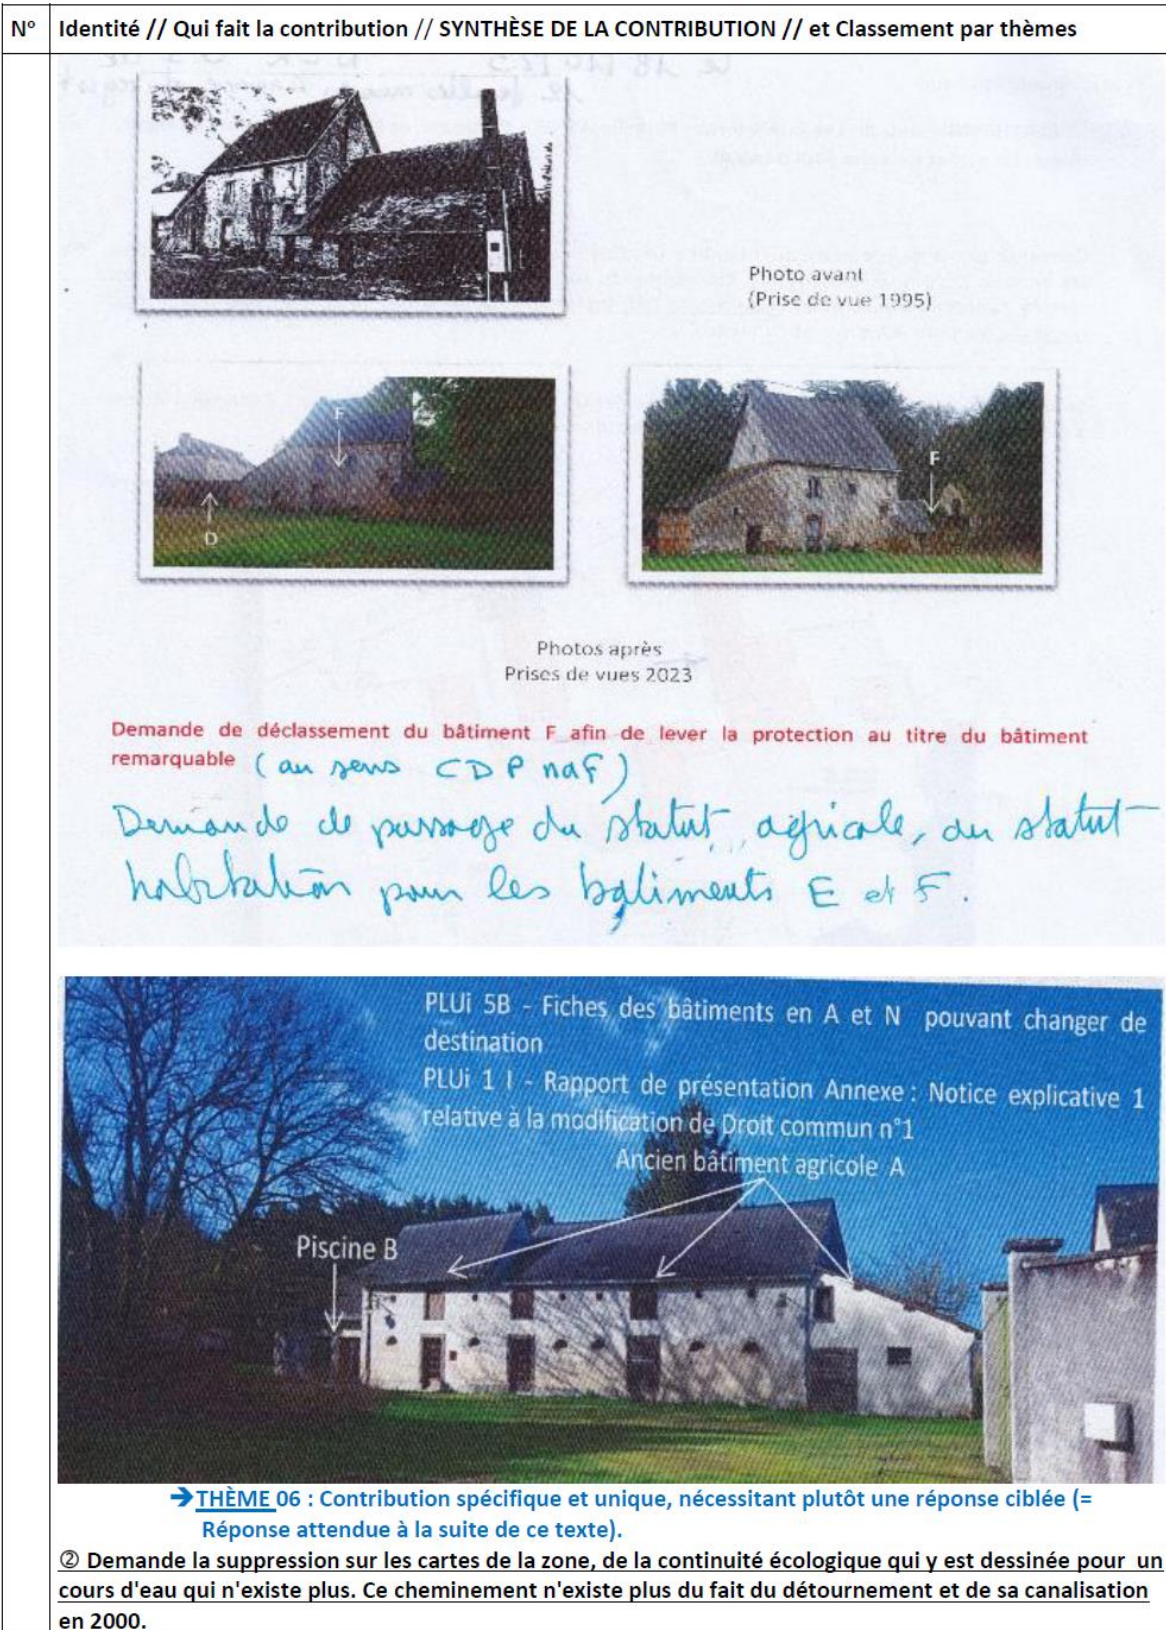 N° Identité // Qui fait la contribution // SYNTHÈSE DE LA CONTRIBUTION // et Classement par thèmes
Photo avant
(Prise de vue 1995)
F
D
F
Photos après
Prises de vues 2023
Demande de déclassement du bâtiment F afin de lever la protection au titre du bâtiment
remarquable (au sens CDPnaF)
Demande de passage du statut agricole, au statut
habitation pour les batiments E et F.
PLUi 5B - Fiches des bâtiments en A et N pouvant changer de
destination
PLUi 1 I - Rapport de présentation Annexe : Notice explicative 1
relative à la modification de Droit commun n°1
Ancien bâtiment agricole A
Piscine B
➔THÈME 06 : Contribution spécifique et unique, nécessitant plutôt une réponse ciblée (=
Réponse attendue à la suite de ce texte).
② Demande la suppression sur les cartes de la zone, de la continuité écologique qui y est dessinée pour un
cours d'eau qui n'existe plus. Ce cheminement n'existe plus du fait du détournement et de sa canalisation
en 2000.